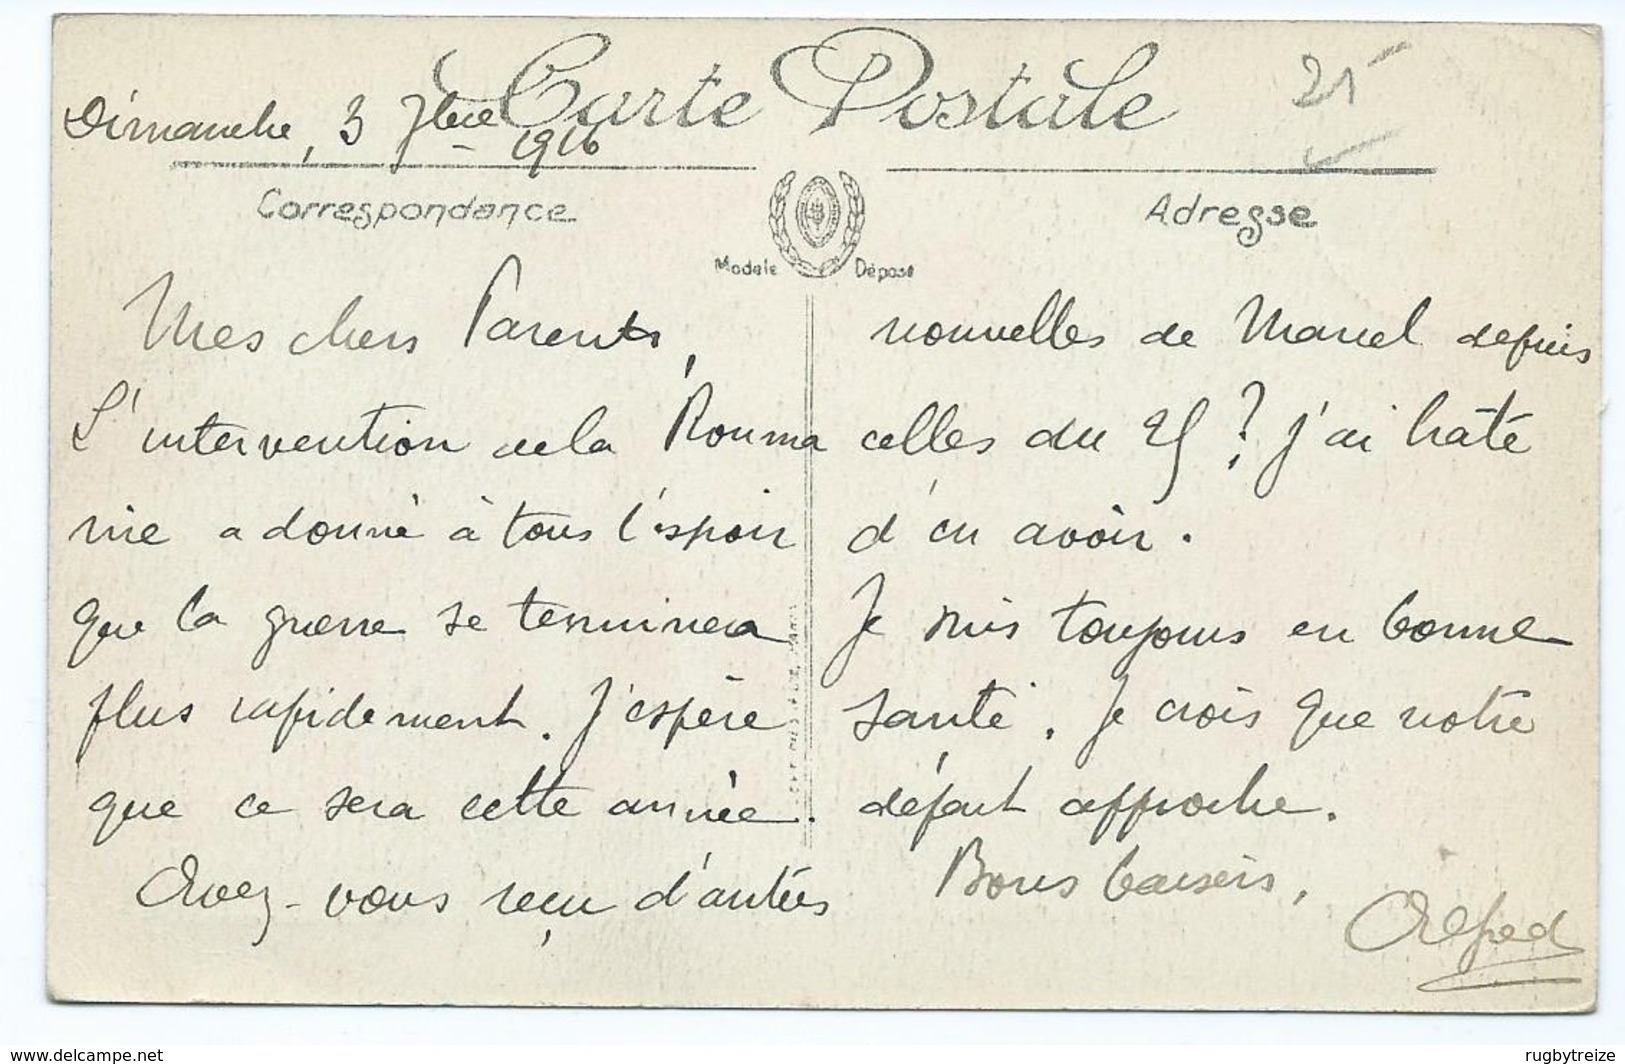 Carte Postale
25
Dimanche, 3 7bre 1916
Correspondance
Adresse
Modele Déposé
Mes chers Parents,
L'intervention de la Rouma
nie a donné à tous l'espoir
que la guerre se terminera
plus rapidement. J'espère
que ce sera cette année.
Avez-vous reçu d'autres
nouvelles de Marcel depuis
celles du 25 ? J'ai hâte
d'en avoir.
Je suis toujours en bonne
santé. Je crois que notre
départ approche.
Bons baisers,
Alfred
www.delcampe.net
rugbytreize